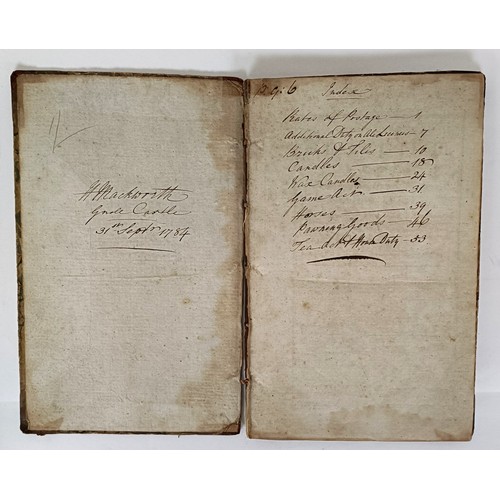 1/-
H Mackworth
Gnoll Castle
31st Septr 1784
G: 6 Index
Rates of Postage — 1
Additional Duty on Ale Licences — 7
Bricks & Tiles — 10
Candles — 18
Wax Candles — 24
Game Act — 31
Horses — 39
Pawning Goods — 46
Tea Act & House Duty — 53